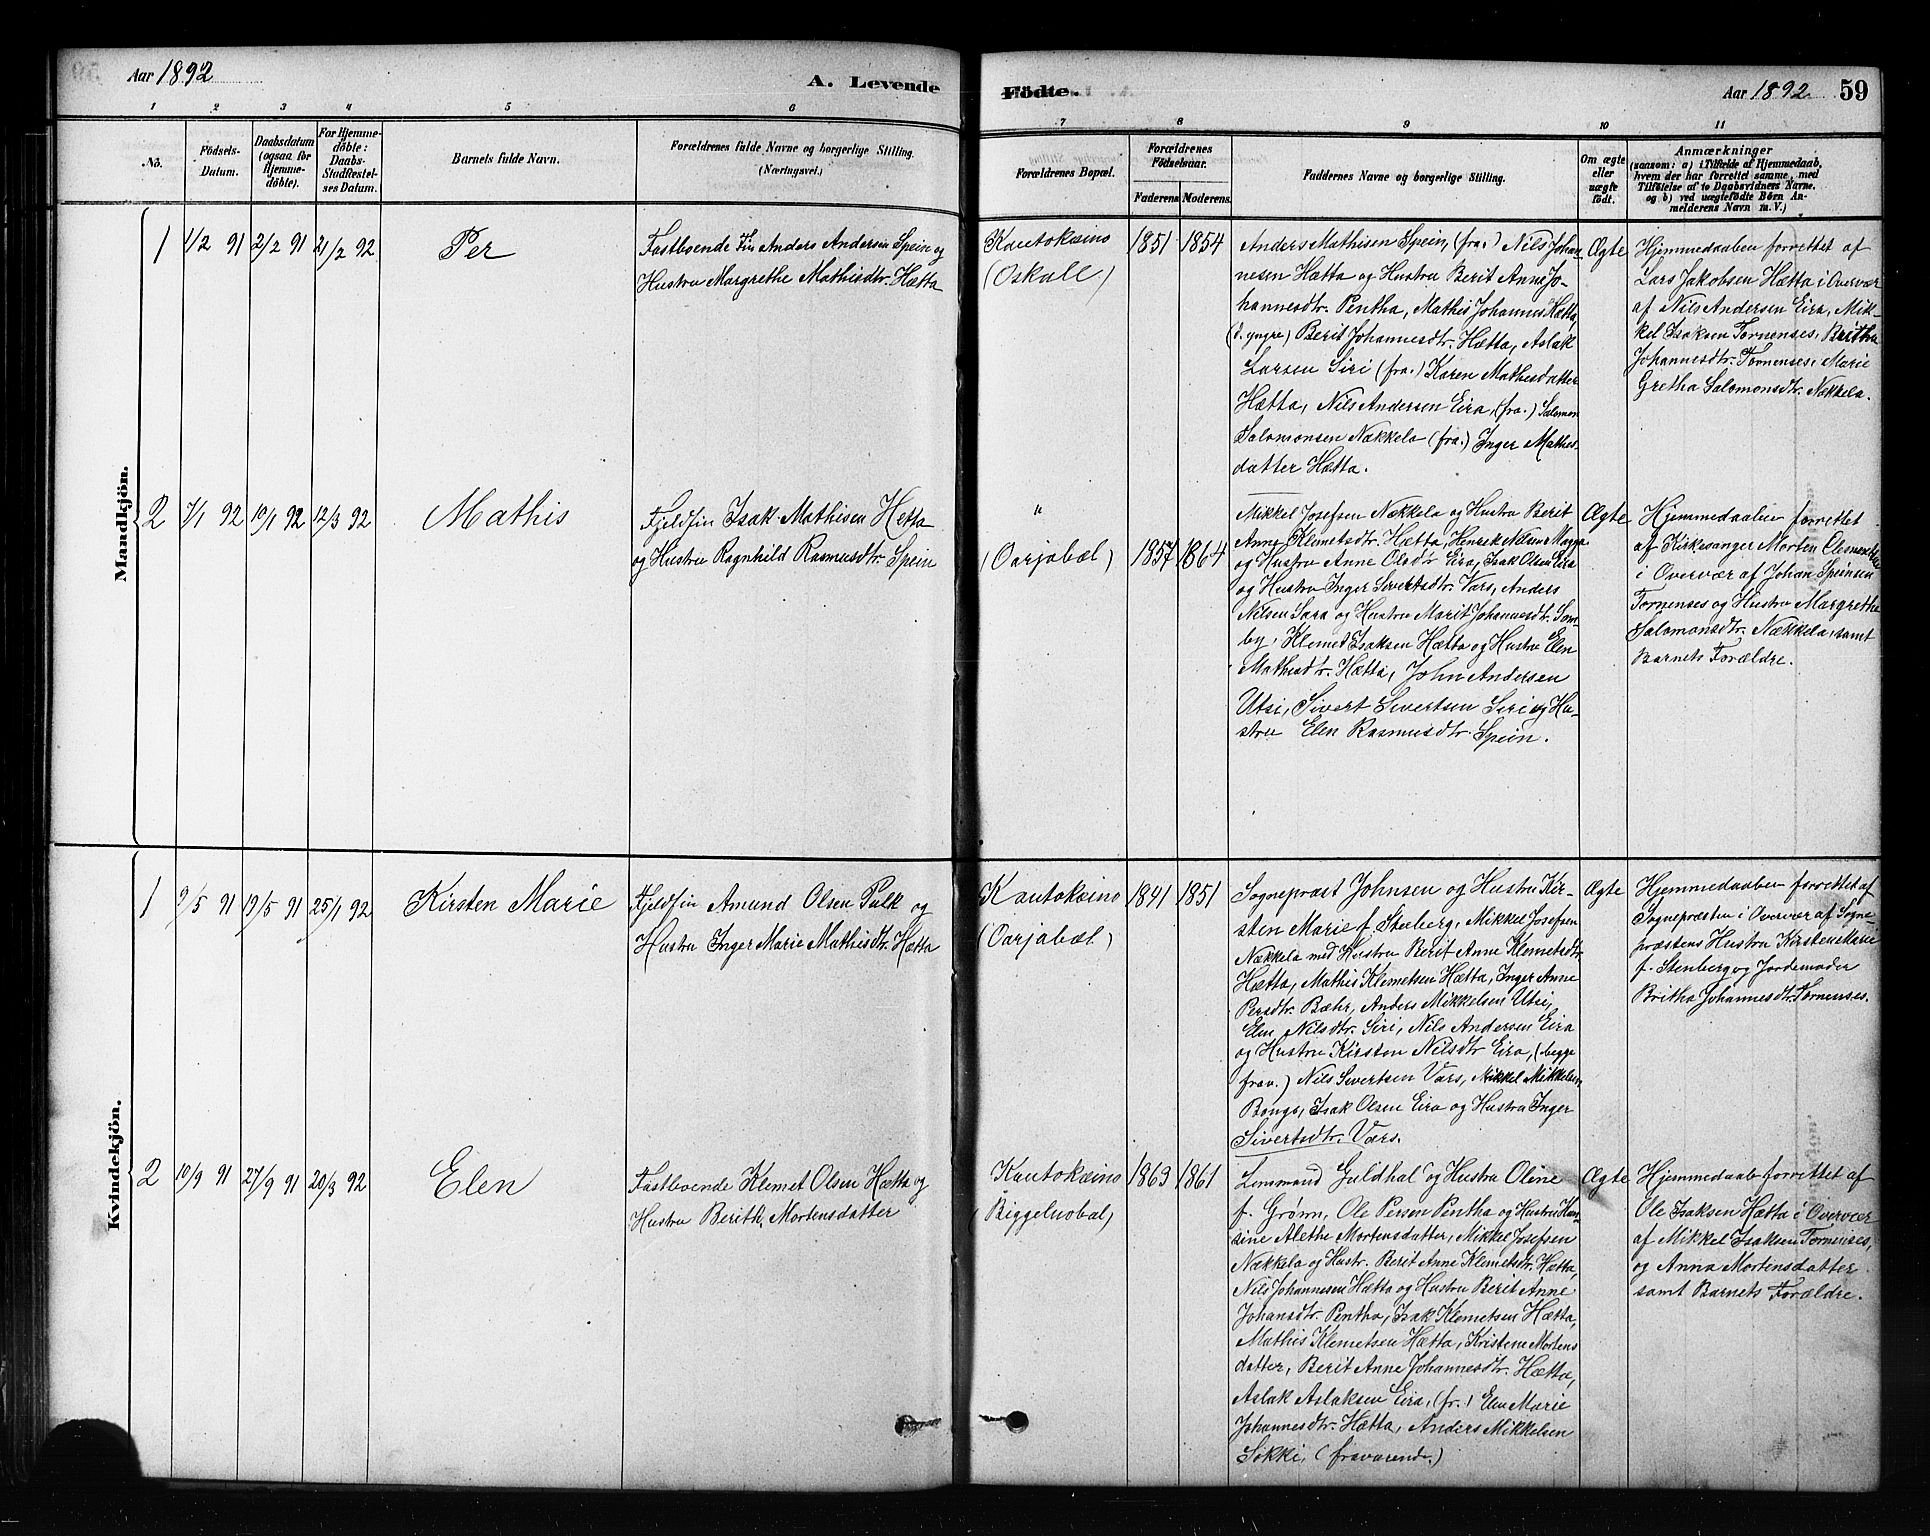 Aar 1892
A. Levende
1 2 3 4 5 6
No.
Födsels-
Datum.
Daabsdatum
(ogsaa for
Hjemme-
döbte).
For Hjemme-
döbte:
Daabs-
Stadfæstel-
ses Datum.
Barnets fulde Navn.
Forældrenes fulde Navne og borgerlige Stilling.
(Næringsvei.)
Mandkjön.
1 1/2 91 2/2 91 21/2 92 Per
Fastboende Fin Anders Andersen Spein og
Hustru Margrethe Mathisdtr. Hætta
2 7/1 92 10/1 92 12/3 92 Mathis
Fjeldfin Isak Mathisen Hætta
og Hustru Ragnhild Rasmusdtr. Spein
Kvindekjön.
1 9/5 91 19/5 91 25/1 92 Kirsten Marie
Fjeldfin Amund Olsen Pulk og
Hustru Inger Marie Mathisdtr. Hætta
2 10/9 91 27/9 91 20/3 92 Elen
Fastboende Klemet Olsen Hætta og
Hustru Berith Mortensdatter
Födte.
Aar 1892 59
7 8 9 10 11
Forældrenes Bopæl.
Forældrenes
Födselsaar.
Faderens Moderens
Faddernes Navne og borgerlige Stilling.
Om ægte
eller
uægte
födt.
Anmærkninger
(saasom: a) i Tilfælde af Hjemmedaab,
hvem der har forrettet samme, med
Tilföielse af to Daabsvidners Navne,
og b) ved uægtefödte Börn An-
melderens Navn m. V.)
Kautokeino
(Oskall)
1851 1854
Anders Mathisen Spein, (fra.) Nils Johan-
nesen Hætta og Hustru Berit Anne Jo-
hannesdtr. Pentha, Mathis Johannes Hætta,
(d. yngre) Berit Johannesdtr. Hætta, Aslak
Larsen Siri (fra.) Karen Mathisdatter
Hætta, Nils Andersen Eira, (fra.) Salomon
Salomonsen Nækkela (fra.) Inger Mathis-
datter Hætta.
Ægte
Hjemmedaaben forrettet af
Lars Jakobsen Hætta i Overvær
af Nils Andersen Eira, Mik-
kel Isaksen Tornenses, Britha
Johannesdtr. Tornenses, Marie
Gretha Salomonsdtr. Nækkela.
"
(Oarjabæl) 1857 1864
Mikkel Josefsen Nækkela og Hustru Berit
Anne Klemetsdtr. Hætta, Henrik Nilsen Magga
og Hustru Anne Olsdr Eira, Isak Olsen Eira
og Hustru Inger Sivertsdtr. Vars, Anders
Nilsen Sara og Hustru Marit Johannesdtr. Som-
by, Klemet Isaksen Hætta og Hustru Elen
Mathisdtr. Hætta, John Andersen
Utsi, Sivert Sivertsen Siri og Hu-
stru Elen Rasmusdtr. Spein.
Ægte
Hjemmedaaben forrettet
af Kirkesanger Morten Clementsen
i Overvær af Johan Speinsen
Tornenses og Hustru Margretha
Salomonsdtr. Nækkela, samt
Barnets Forældre.
Kautokeino
(Oarjabæl)
1841 1851
Sognepræst Johnsen og Hustru Kir-
sten Marie f. Stenberg, Mikkel Josefsen
Nækkela med Hustru Berit Anne Klemetsdtr.
Hætta, Mathis Klemetsen Hætta, Inger Anne
Persdtr. Bæhr, Anders Mikkelsen Utsi,
Elen Nilsdtr. Siri, Nils Andersen Eira
og Hustru Kirsten Nilsdtr Eira, (begge
frav.) Nils Sivertsen Vars, Mikkel Mikkelsen
Bongo, Isak Olsen Eira og Hustru Inger
Sivertsdtr. Vars.
Ægte
Hjemmedaaben forrettet af
Sognepræsten i Overvær af Sogne-
præstens Hustru Kirsten Marie
f. Stenberg og Jordemoder
Britha Johannesdtr. Tornenses.
Kautokeino
(Biggeluobal)
1863 1861
Lensmand Guldhal og Hustru Oline
f. Grønn, Ole Persen Pentha og Hustru Han-
sine Alethe Mortensdatter, Mikkel Josefsen
Nækkela og Hustr. Berit Anne Klemetsdtr. Hætta,
Nils Johannesen Hætta og Hustru Berit Anne
Johansdtr. Pentha, Isak Klemetsen Hætta,
Mathis Klemetsen Hætta, Kristene Mortens
datter, Berit Anne Johannesdtr. Hætta,
Aslak Aslaksen Eira, (fr.) Elen Marie
Johannesdtr. Hætta, Anders Mikkelsen
Sokki, (fraværende.)
Ægte
Hjemmedaab forrettet af
Ole Isaksen Hætta i Overvær
af Mikkel Isaksen Tornenses,
og Anna Mortensdatter
samt Barnets Forældre.